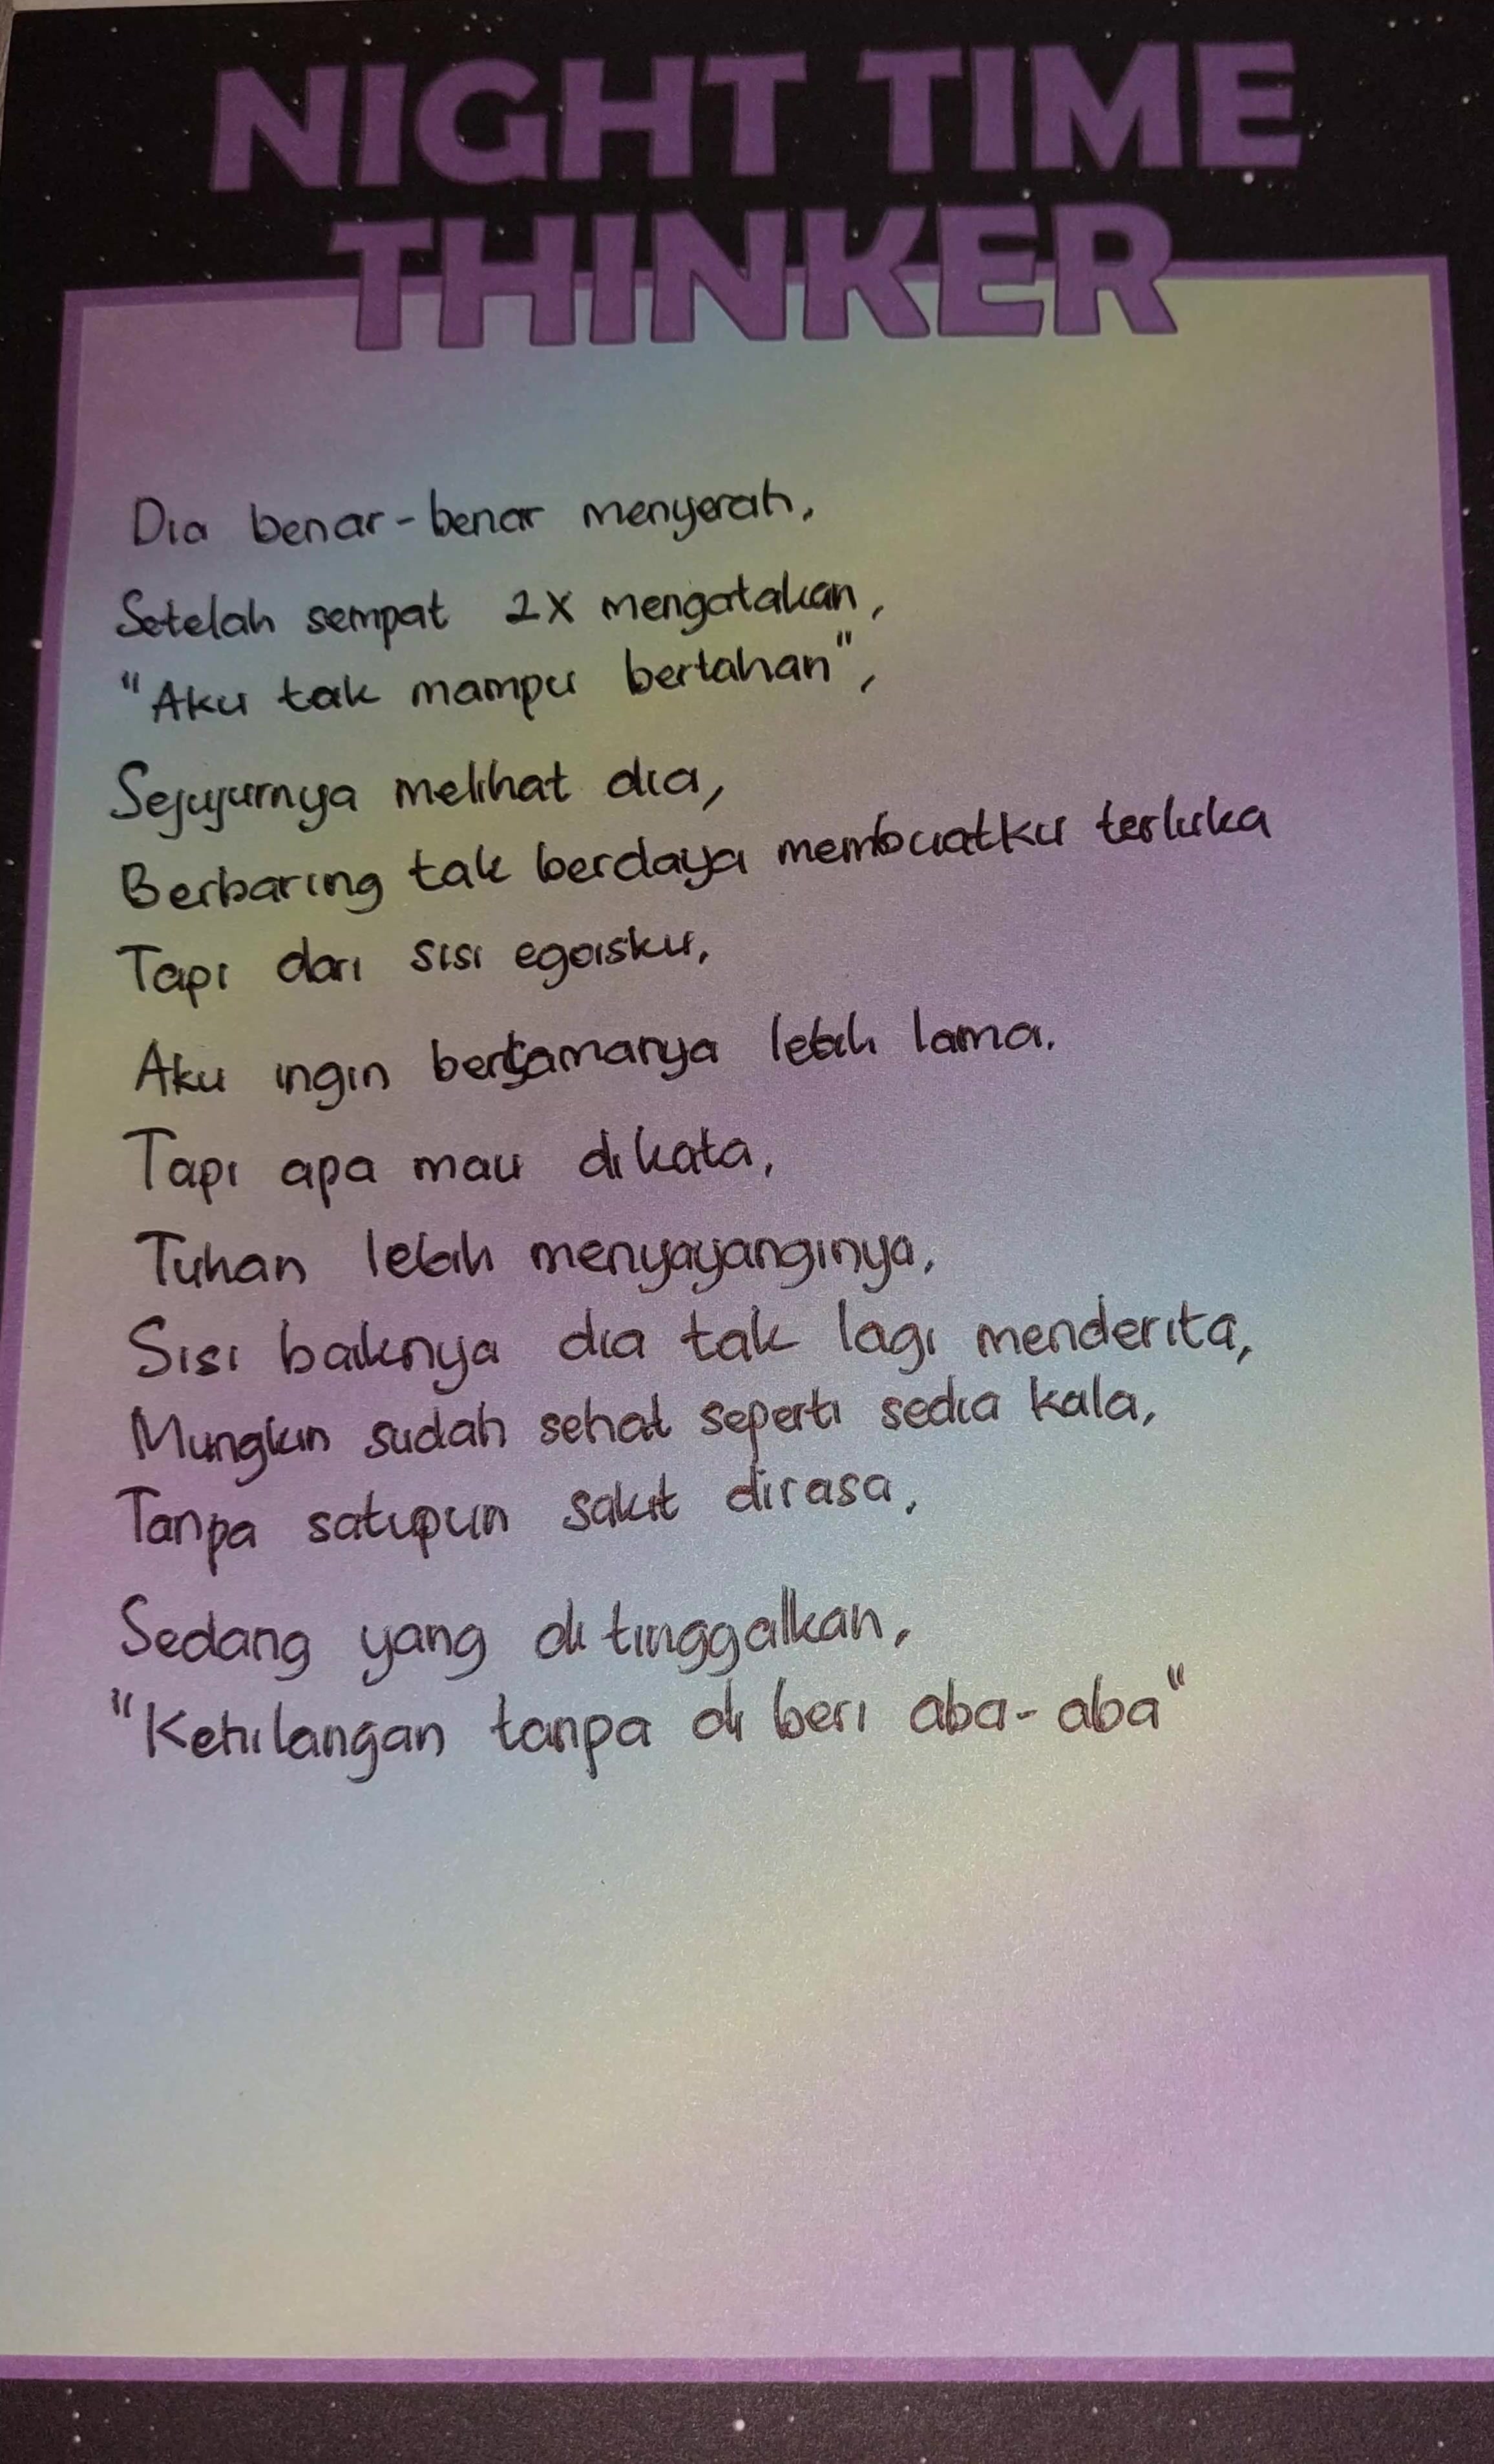 NIGHT TIME
THINKER
Dia benar-benar menyerah,
Setelah sempat 2x mengatakan,
"Aku tak mampu bertahan",
Sejujurnya melihat dia,
Berbaring tak berdaya membuatku terluka
Tapi dari sisi egoisku,
Aku ingin bersamanya lebih lama.
Tapi apa mau dikata,
Tuhan lebih menyayanginya,
Sisi baiknya dia tak lagi menderita,
Mungkin sudah sehat seperti sedia kala,
Tanpa satupun sakit dirasa,
Sedang yang di tinggalkan,
"Kehilangan tanpa di beri aba-aba"